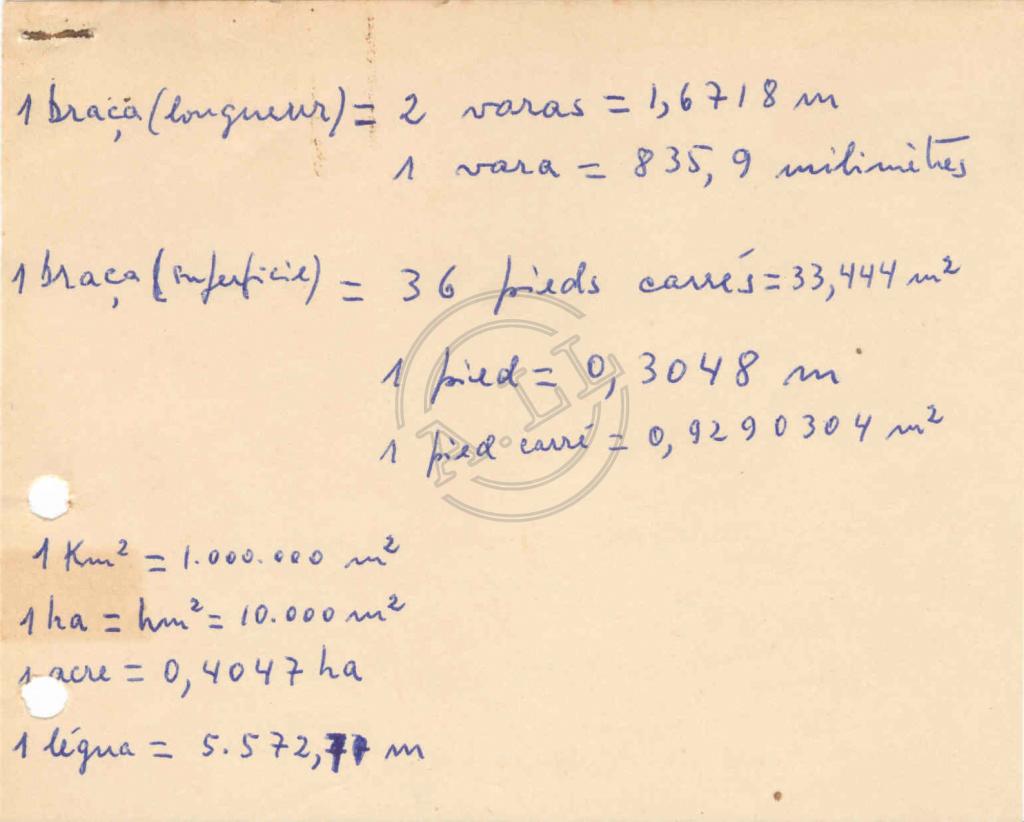 1 braça (longueur) = 2 varas = 1,6718 m
1 vara = 835,9 milimètres
1 braça (superficie) = 36 pieds carrés = 33,444 m²
1 pied = 0,3048 m
1 pied carré = 0,9290304 m²
A.LL
1 Km² = 1.000.000 m²
1 ha = hm² = 10.000 m²
1 acre = 0,4047 ha
1 légua = 5.572,77 m